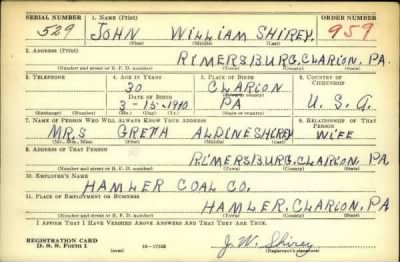 SERIAL NUMBER 1. NAME (Print) ORDER NUMBER
529 JOHN WILLIAM SHIREY. 959
(First) (Middle) (Last)
2. ADDRESS (Print)
RIMERSBURG, CLARION, PA.
(Number and street or R. F. D. number) (Town) (County) (State)
3. TELEPHONE 4. AGE IN YEARS 5. PLACE OF BIRTH 6. COUNTRY OF CITIZENSHIP
30 CLARION
(Town or county)
DATE OF BIRTH
3-15-1910 PA U.S.A.
(Exchange) (No.) (Mo.) (Day) (Yr.) (State or country)
7. NAME OF PERSON WHO WILL ALWAYS KNOW YOUR ADDRESS 8. RELATIONSHIP OF THAT PERSON
MRS GRETA ALDINE SHIREY WIFE
(Mr., Mrs., Miss) (First) (Middle) (Last)
9. ADDRESS OF THAT PERSON
RIMERSBURG, CLARION, PA
(Number and street or R. F. D. number) (Town) (County) (State)
10. EMPLOYER'S NAME
HAMLER COAL CO.
11. PLACE OF EMPLOYMENT OR BUSINESS
HAMLER, CLARION, PA
(Number and street or R. F. D. number) (Town) (County) (State)
I AFFIRM THAT I HAVE VERIFIED ABOVE ANSWERS AND THAT THEY ARE TRUE.
REGISTRATION CARD
D. S. S. Form 1 (over) 16-17105 J. W. Shirey
(Registrant's signature)